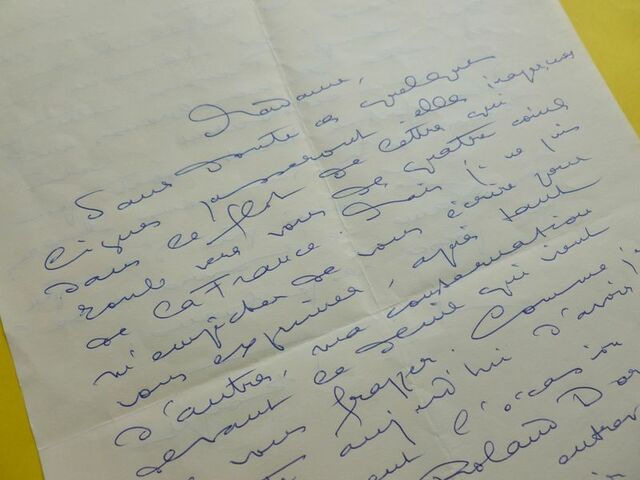 Madame,
Sans doute ces quelques
lignes passeront elles inaperçues
dans le flot de lettres qui
roule vers vous des quatre coins
de la France. Mais je ne puis
m'empêcher de vous écrire pour
vous exprimer, après tant
d'autres, ma consternation
devant le deuil qui vient
de vous frapper. Comme je
aujourd'hui d'avoir
l'occasion
Roland Dor